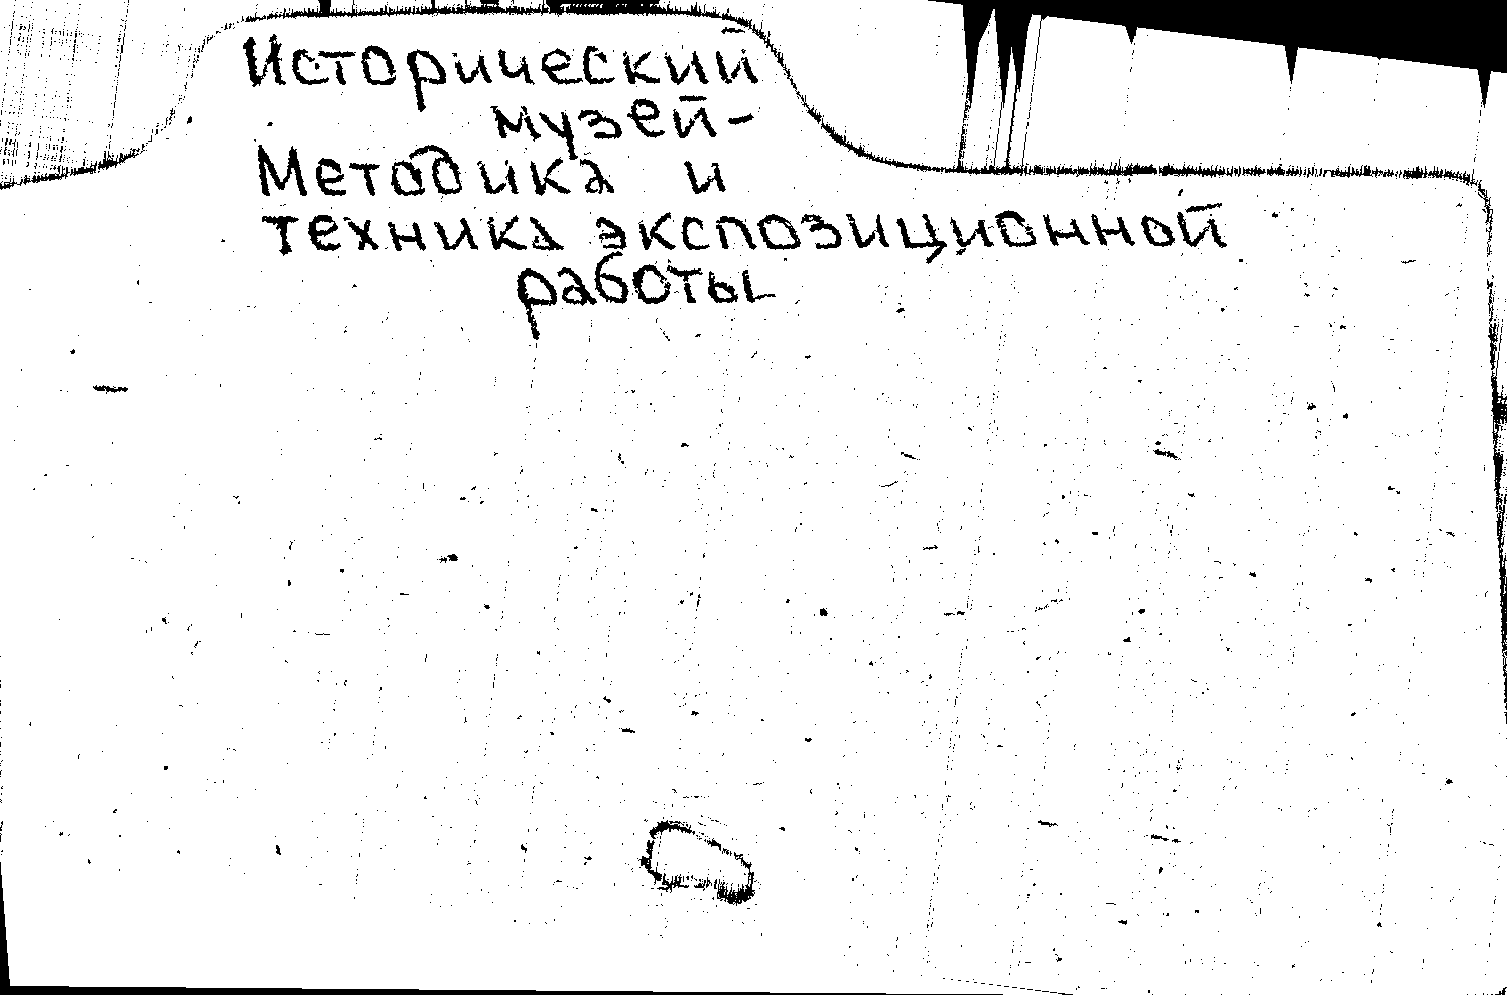 Исторический
музей-
Методика и
техника экспозиционной
работы